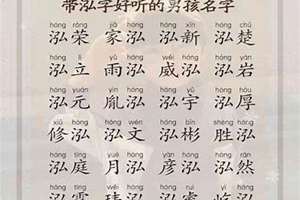 带泓字好听的男孩名字
hóng róng jiā hóng hóng xīn hóng chǔ
泓荣 家泓 泓新 泓楚
hóng lì yǔ hóng wēi hóng hóng yán
泓立 雨泓 威泓 泓岩
hóng yuán yìn hóng hóng yǔ hóng hòu
泓元 胤泓 泓宇 泓厚
xiū hóng hóng wén hóng bīn shèng hóng
修泓 泓文 泓彬 胜泓
hóng tíng yuè hóng yàn hóng hóng rán
泓庭 月泓 彦泓 泓然
hóng hóng hóng hóng
泓 泓 泓 泓